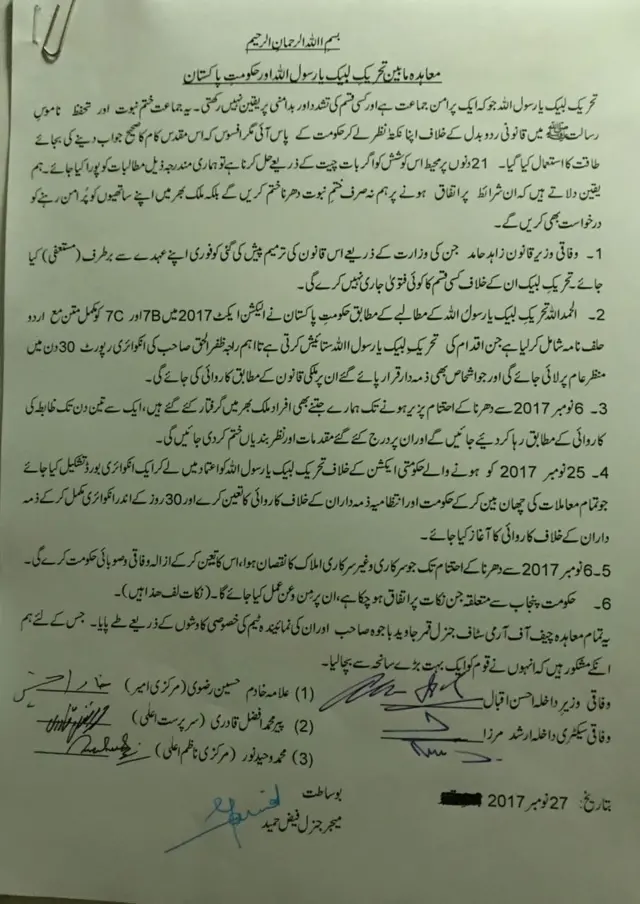 بسم اللہ الرحمان الرحیم
معاہدہ مابین تحریک لبیک یا رسول اللہ اور حکومت پاکستان
تحریک لبیک یا رسول اللہ جو کہ ایک پر امن جماعت ہے اور کسی قسم کی تشدد اور بدامنی پر یقین نہیں رکھتی۔ یہ جماعت ختم نبوت اور تحفظ ناموس
رسالت ﷺ میں قانونی ردو بدل کے خلاف اپنا نکتۂ نظر لے کر حکومت کے پاس آئی مگر افسوس کہ اس مقدس کام کا صحیح جواب دینے کی بجائے
طاقت کا استعمال کیا گیا۔ 21 دنوں پر محیط اس کوشش کو اگر بات چیت کے ذریعے حل کرنا ہے تو ہماری مندرجہ ذیل مطالبات کو پورا کیا جائے۔ ہم
یقین دلاتے ہیں کہ ان شرائط پر اتفاق ہونے پر ہم نہ صرف ختم نبوت دھرنا ختم کریں گے بلکہ ملک بھر میں اپنے ساتھیوں کو پُر امن رہنے کو
درخواست بھی کریں گے۔
1۔ وفاقی وزیر قانون زاہد حامد جن کی وزارت کے ذریعے اس قانون کی ترمیم پیش کی گئی کو فوری اپنے عہدے سے برطرف (مستعفی) کیا
جائے۔ تحریک لبیک ان کے خلاف کسی قسم کا کوئی فتویٰ جاری نہیں کرے گی۔
2۔ الحمد اللہ تحریک لبیک یا رسول اللہ کے مطالبے کے مطابق حکومت پاکستان نے الیکشن ایکٹ 2017 میں 7B اور 7C کو مکمل متن مع اردو
حلف نامہ شامل کر لیا ہے جن اقدام کی تحریک لبیک یا رسول اللہ ستائیش کرتی ہے تا اہم راجہ ظفر الحق صاحب کی انکوائری رپورٹ 30 دن میں
منظر عام پر لائی جائے گی اور جو اشخاص بھی ذمہ دار قرار پائے گئے ان پر ملکی قانون کے مطابق کاروائی کی جائے گی۔
3۔ 6 نومبر 2017 سے دھرنا کے اختتام پزیر ہونے تک ہمارے جتنے بھی افراد ملک بھر میں گرفتار کئے گئے ہیں، ایک سے تین دن تک ضابطہ کی
کاروائی کے مطابق رہا کر دیئے جائیں گے اور ان پر درج کئے گئے مقدمات اور نظر بندیاں ختم کر دی جائیں گی۔
4۔ 25 نومبر 2017 کو ہونے والے حکومتی ایکشن کے خلاف تحریک لبیک یا رسول اللہ کو اعتماد میں لے کر ایک انکوائری بورڈ تشکیل کیا جائے
جو تمام معاملات کی چھان بین کر کے حکومت اور انتظامیہ ذمہ داران کے خلاف کاروائی کا تعین کرے اور 30 روز کے اندر انکوائری مکمل کر کے ذمہ
داران کے خلاف کاروائی کا آغاز کیا جائے۔
5۔ 6 نومبر 2017 سے دھرنا کے اختتام تک جو سرکاری و غیر سرکاری املاک کا نقصان ہوا، اس کا تعین کر کے ازالہ وفاقی و صوبائی حکومت کرے گی۔
6۔ حکومت پنجاب سے متعلقہ جن نکات پر اتفاق ہو چکا ہے، ان پر من و عن عمل کیا جائے گا۔ (نکات لف ھذا ہیں)۔
یہ تمام معاہدہ چیف آف آرمی سٹاف جنرل قمر جاوید باجوہ صاحب اور ان کی نمائیندہ ٹیم کی خصوصی کاوشوں کے ذریعے طے پایا۔ جس کے لئے ہم
انکے مشکور ہیں کہ انہوں نے قوم کو ایک بہت بڑے سانحہ سے بچا لیا۔
وفاقی وزیر داخلہ احسن اقبال (1) علامہ خادم حسین رضوی (مرکزی امیر)
وفاقی سیکٹری داخلہ ارشد مرزا (2) پیر محمد افضل قادری (سرپرست اعلی)
(3) محمد وحید نور (مرکزی ناظم اعلی)
بتاریخ: 27 نومبر 2017
بوساطت
میجر جنرل فیض حمید